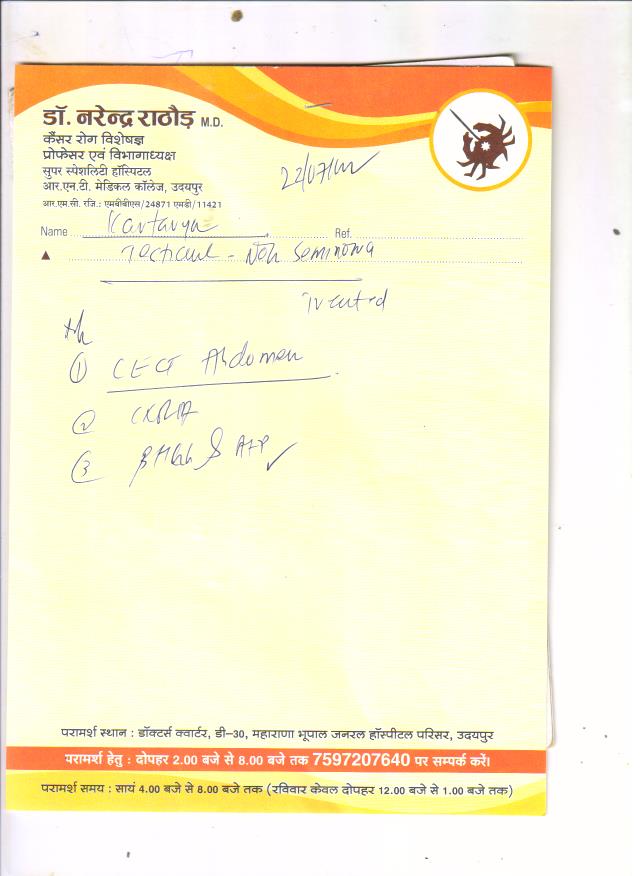 डॉ. नरेन्द्र राठौड़ M.D.
कैंसर रोग विशेषज्ञ
प्रोफेसर एवं विभागाध्यक्ष
सुपर स्पेशलिटी हॉस्पिटल
आर.एन.टी. मेडिकल कॉलेज, उदयपुर
आर.एम.सी. रजि.: एमबीबीएस/24871 एमडी/11421
22/07/
Name Kartavya Ref.
- Non Seminoma
Treated
① CECT Abdomen
② CXR PA
③ βHCG & AFP ✓
परामर्श स्थान : डॉक्टर्स क्वार्टर, डी-30, महाराणा भूपाल जनरल हॉस्पीटल परिसर, उदयपुर
परामर्श हेतु : दोपहर 2.00 बजे से 8.00 बजे तक 7597207640 पर सम्पर्क करें।
परामर्श समय : सायं 4.00 बजे से 8.00 बजे तक (रविवार केवल दोपहर 12.00 बजे से 1.00 बजे तक)